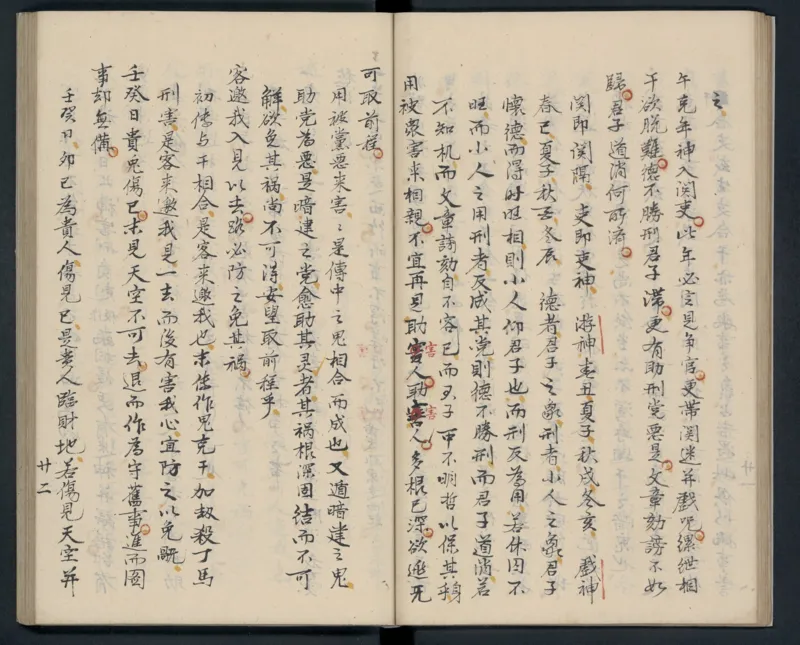 之
午克年神入関吏此年必定見争官更帶関迷并戲咒縲絏相
干欲脱難德不勝刑君子滯更有助刑党惡是文章劾謗不如
歸君子道消何所濟
関即関隔 吏即吏神 游神春丑夏子秋戌冬亥 戲神
春己夏子秋丑冬辰 德者君子之象刑者小人之象君子
懷德而得时旺相則小人仰君子也而刑反為用若休囚不
旺而小人之用刑者反成其党則德不勝刑而君子道消若
不知机而文章謗劾自不容已而君子可不明哲以保其身
用被衆害来相親不宜再見助害人助害人多根已深欲進无
可取前程
用被黨惡来害之是傳中之鬼相合而成也又遁暗建之鬼
助党為惡是暗建之党愈助其灵者其禍根深固結而不可
解欲免其禍尚不可得安望取前程乎
客邀我入見以去路必防之免其禍
初傳与干相合是客来邀我也末傳作鬼克干加劫殺丁馬
刑害是客来邀我是一去而後有害我心宜防之以免
壬癸日貴鬼傷已未見天空不可去退而作為守舊事進而圖
事却無備
壬癸日卯巳為貴人傷見巳是貴人臨財地若傷見天空并
廿二